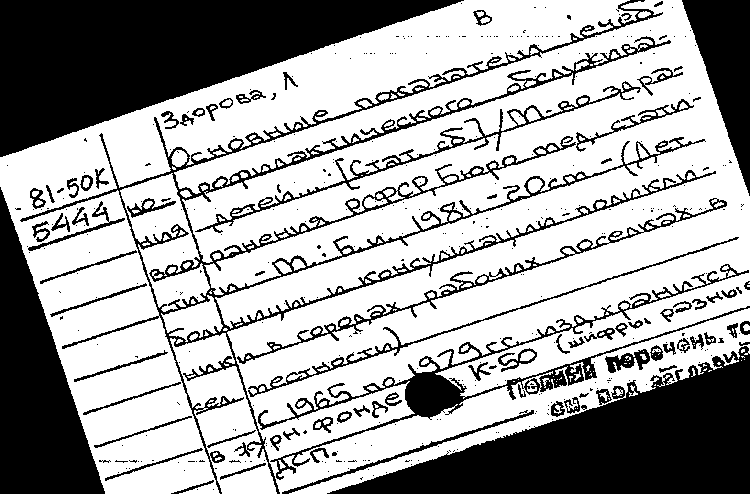 В
Здорова, Л
Основные показатели лечеб-
но-профилактического обслужива-
ния детей...: [Стат. сб.] / М-во здра-
воохранения РСФСР, Бюро мед. стати-
стики. - М.: Б.и., 1981. - 20см. - (Дет.
больницы и консультации-поликли-
ники в городах, рабочих поселках в
сел. местности)
С 1965 по 1979 гг. изд. хранится
в журн. фонде К-50 (шифры разные
ДСП.
81-50К
5444
Полный перечень. то
см. под заглавие